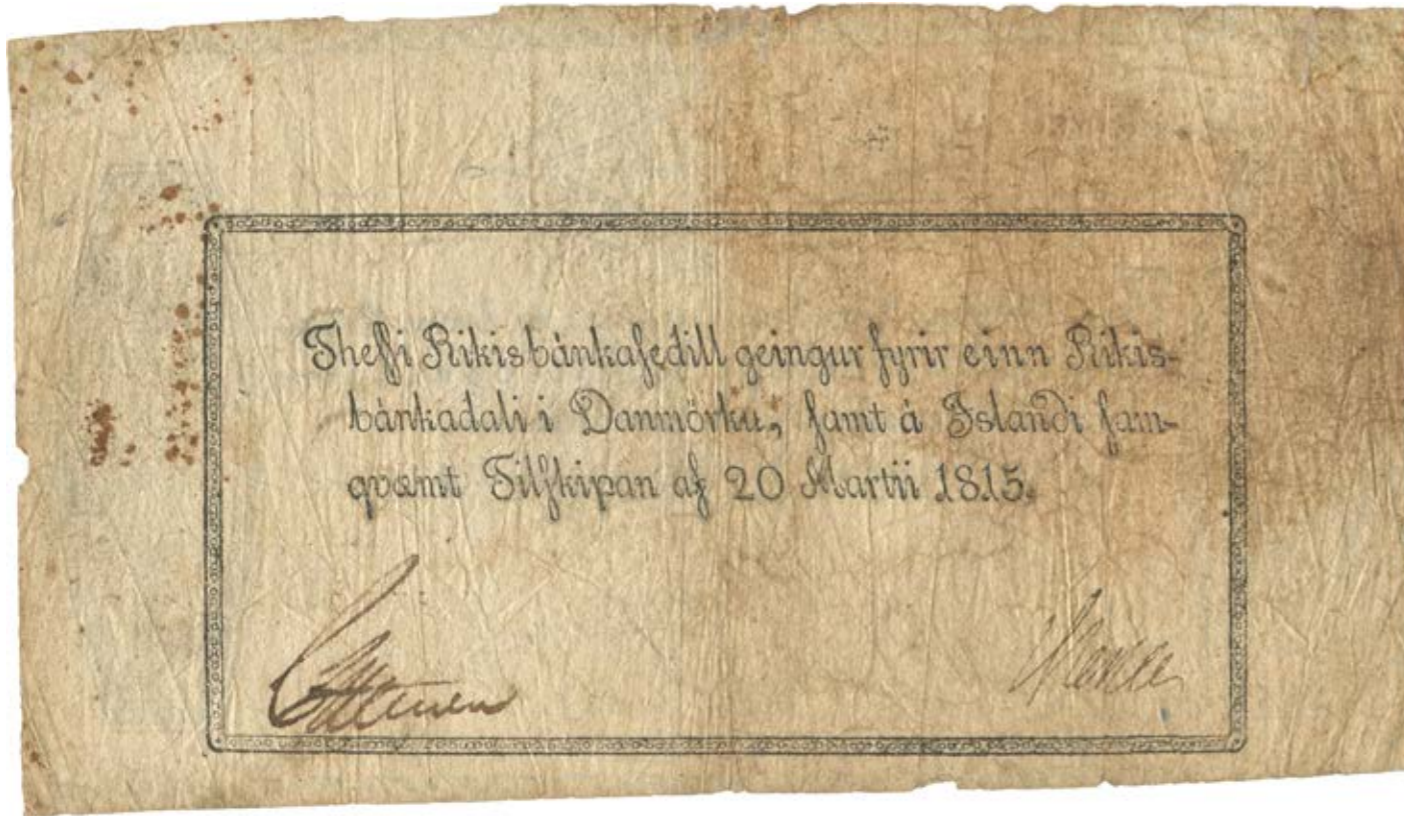 Theſſi Rikisbánkaſedill geingur fyrir einn Rikis-
bánkadali i Danmörku, ſamt á Islandi ſam-
qvæmt Tilſkipan af 20 Martii 1815.